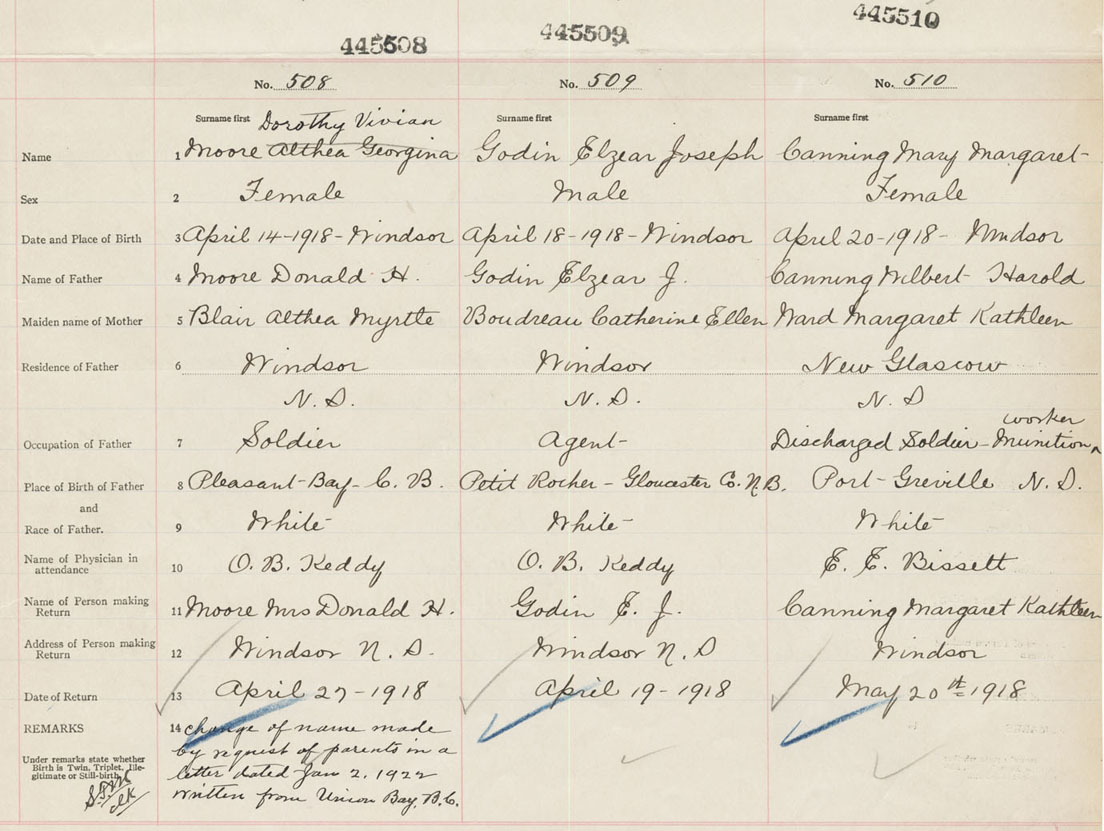 445508 445509 445510
No. 508 No. 509 No. 510
Surname first Surname first Surname first
Dorothy Vivian
Name 1 Moore Althea Georgina Godin Elzear Joseph Canning Mary Margaret
Sex 2 Female Male Female
Date and Place of Birth 3 April 14-1918-Windsor April 18-1918-Windsor April 20-1918- Windsor
Name of Father 4 Moore Donald H. Godin Elzear J. Canning Wilbert Harold
Maiden name of Mother 5 Blair Althea Myrtle Boudreau Catherine Ellen Ward Margaret Kathleen
Residence of Father 6 Windsor Windsor New Glascow
N.S. N.S. N.S
worker
Occupation of Father 7 Soldier Agent- Discharged Soldier-Munition
Place of Birth of Father 8 Pleasant-Bay-C.B. Petit Rocher-Gloucester Co. N.B. Port-Greville N.S.
and
Race of Father. 9 White White White
Name of Physician in
attendance 10 O. B. Keddy O. B. Keddy E. E. Bissett
Name of Person making
Return 11 Moore Mrs Donald H. Godin E. J. Canning Margaret Kathleen
Address of Person making
Return 12 Windsor N.S. Windsor N.S Windsor
Date of Return 13 April 27-1918 April 19-1918 May 20th 1918
REMARKS 14 change of name made
by request of parents in a
Under remarks state whether
Birth is Twin, Triplet, Ille-
gitimate or Still-birth. letter dated Jan 2, 1922
written from Union Bay, B.C.